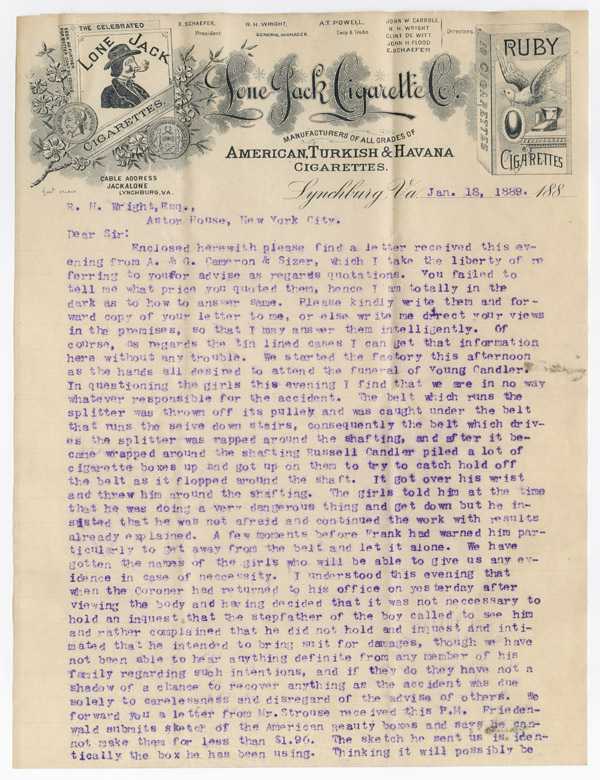 THE CELEBRATED
LONE JACK
CIGARETTES.
E. SCHAEFER, President.
R. H. WRIGHT, GENERAL-MANAGER.
A.T. POWELL, Sec'y & Treas.
JOHN W. CARROLL
R. H. WRIGHT
CLINT DE WITT
JOHN H. FLOOD
E. SCHAEFER
Directors.
Lone Jack Cigarette Co.
MANUFACTURERS OF ALL GRADES OF
AMERICAN, TURKISH & HAVANA
CIGARETTES.
10 CIGARETTES
RUBY
CIGARETTES
CABLE ADDRESS
JACKALONE
LYNCHBURG, VA.
Lynchburg, Va. Jan. 18, 1889. 188
R. H. Wright, Esq.,
Astor House, New York City.
Dear Sir:
Enclosed herewith please find a letter received this ev-
ening from A. & G. Cameron & Sizer, which I take the liberty of re
ferring to you for advise as regards quotations. You failed to
tell me what price you quoted them, hence I am totally in the
dark as to how to answer same. Please kindly write them and for-
ward copy of your letter to me, or else write me direct your views
in the premises, so that I may answer them intelligently. Of
course, as regards the tin lined cases I can get that information
here without any trouble. We started the factory this afternoon
as the hands all desired to attend the funeral of Young Candler.
In questioning the girls this evening I find that we are in no way
whatever responsible for the accident. The belt which runs the
splitter was thrown off its pulley and was caught under the belt
that runs the seive down stairs, consequently the belt which driv-
es the splitter was rapped around the shafting, and after it be-
came wrapped around the shafting Russell Candler piled a lot of
cigarette boxes up and got up on them to try to catch hold off
the belt as it flopped around the shaft. It got over his wrist
and threw him around the shafting. The girls told him at the time
that he was doing a very dangerous thing and get down but he in-
sisted that he was not afraid and continued the work with results
already explained. A few moments before Frank had warned him par-
ticularly to get away from the belt and let it alone. We have
gotten the names of the girls who will be able to give us any ev-
idence in case of neccessity. I understood this evening that
when the Coroner had returned to his office on yesterday after
viewing the body and having decided that it was not neccessary to
hold an inquest, that the stepfather of the boy called to see him
and rather complained that he did not hold and inquest and inti-
mated that he intended to bring suit for damages, though we have
not been able to hear anything definite from any member of his
family regarding such intentions, and if they do they have not a
shadow of a chance to recover anything as the accident was due
solely to carelessness and disregard of the advise of others. We
forward you a letter from Mr. Strouse received this P.M. Frieden-
wald submits sketch of the American Beauty boxes and says he can-
not make them for less than $1.96. The sketch he sent us is iden-
tically the box he has been using. Thinking it will possibly be